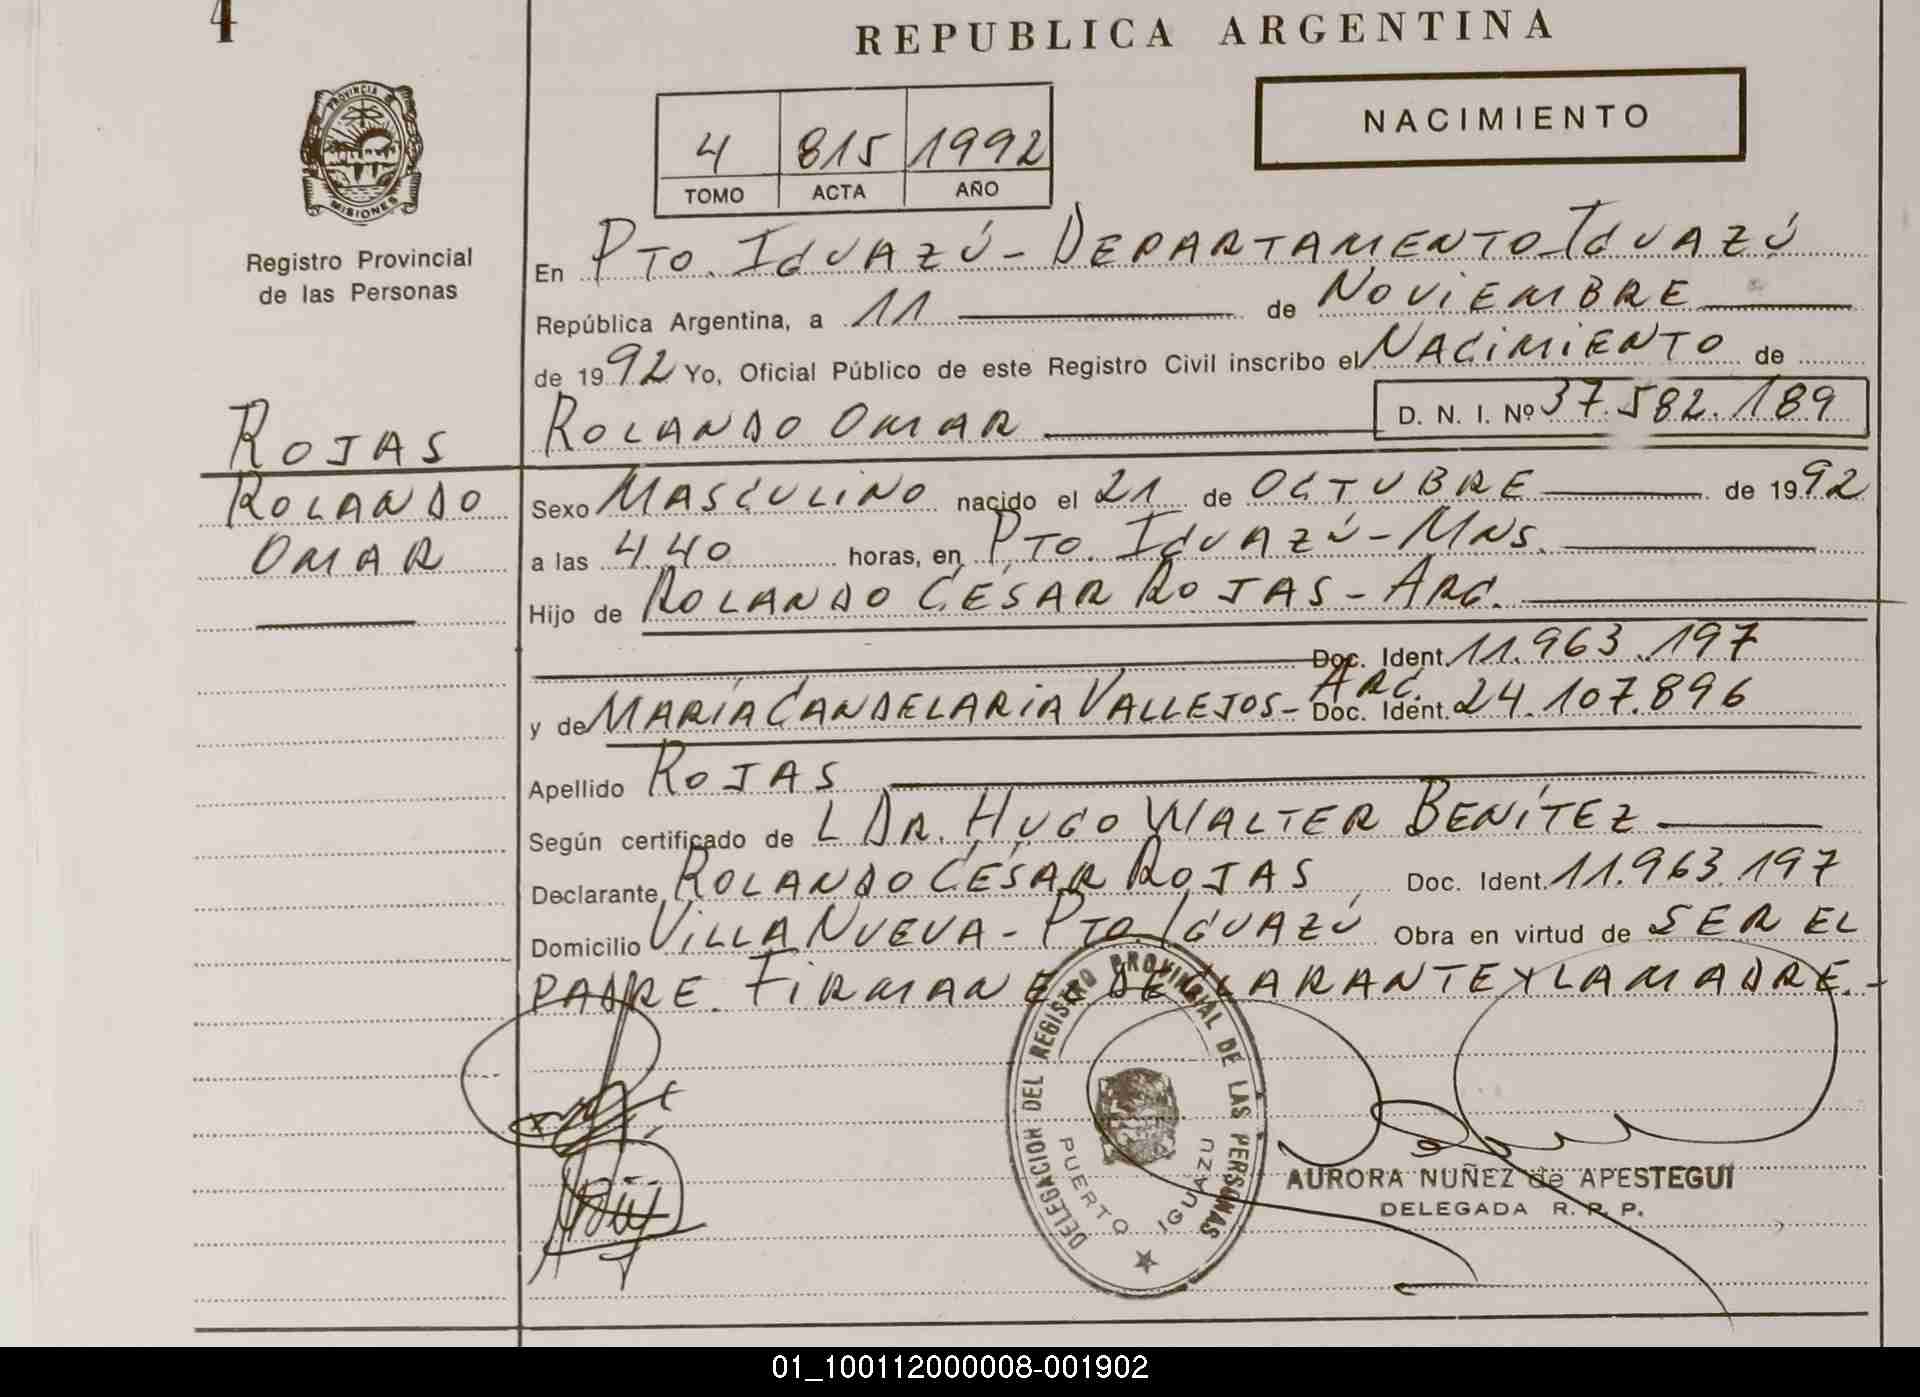 4
REPUBLICA ARGENTINA
PROVINCIA
MISIONES
Registro Provincial
de las Personas
4 815 1992
TOMO ACTA AÑO
NACIMIENTO
En PTO. IGUAZÚ - DEPARTAMENTO IGUAZÚ
República Argentina, a 11 de NOVIEMBRE
de 1992 Yo, Oficial Público de este Registro Civil inscribo el NACIMIENTO de
ROLANDO OMAR D. N. I. Nº 37.582.189
ROJAS
ROLANDO
OMAR
Sexo MASCULINO nacido el 21 de OCTUBRE de 1992
a las 4.40 horas, en PTO. IGUAZÚ - MNS.
Hijo de ROLANDO CÉSAR ROJAS - ARG.
Doc. Ident. 11.963.197
y de MARÍA CANDELARIA VALLEJOS - ARG. Doc. Ident. 24.107.896
Apellido ROJAS
Según certificado de L DR. HUGO WALTER BENÍTEZ
Declarante ROLANDO CÉSAR ROJAS Doc. Ident. 11.963.197
Domicilio VILLA NUEVA - PTO. IGUAZÚ Obra en virtud de SER EL
PADRE. FIRMAN EL DECLARANTE Y LA MADRE.-
DELEGACION DEL REGISTRO PROVINCIAL DE LAS PERSONAS
PUERTO IGUAZU
AURORA NUÑEZ de APESTEGUI
DELEGADA R. P. P.
01_100112000008-001902